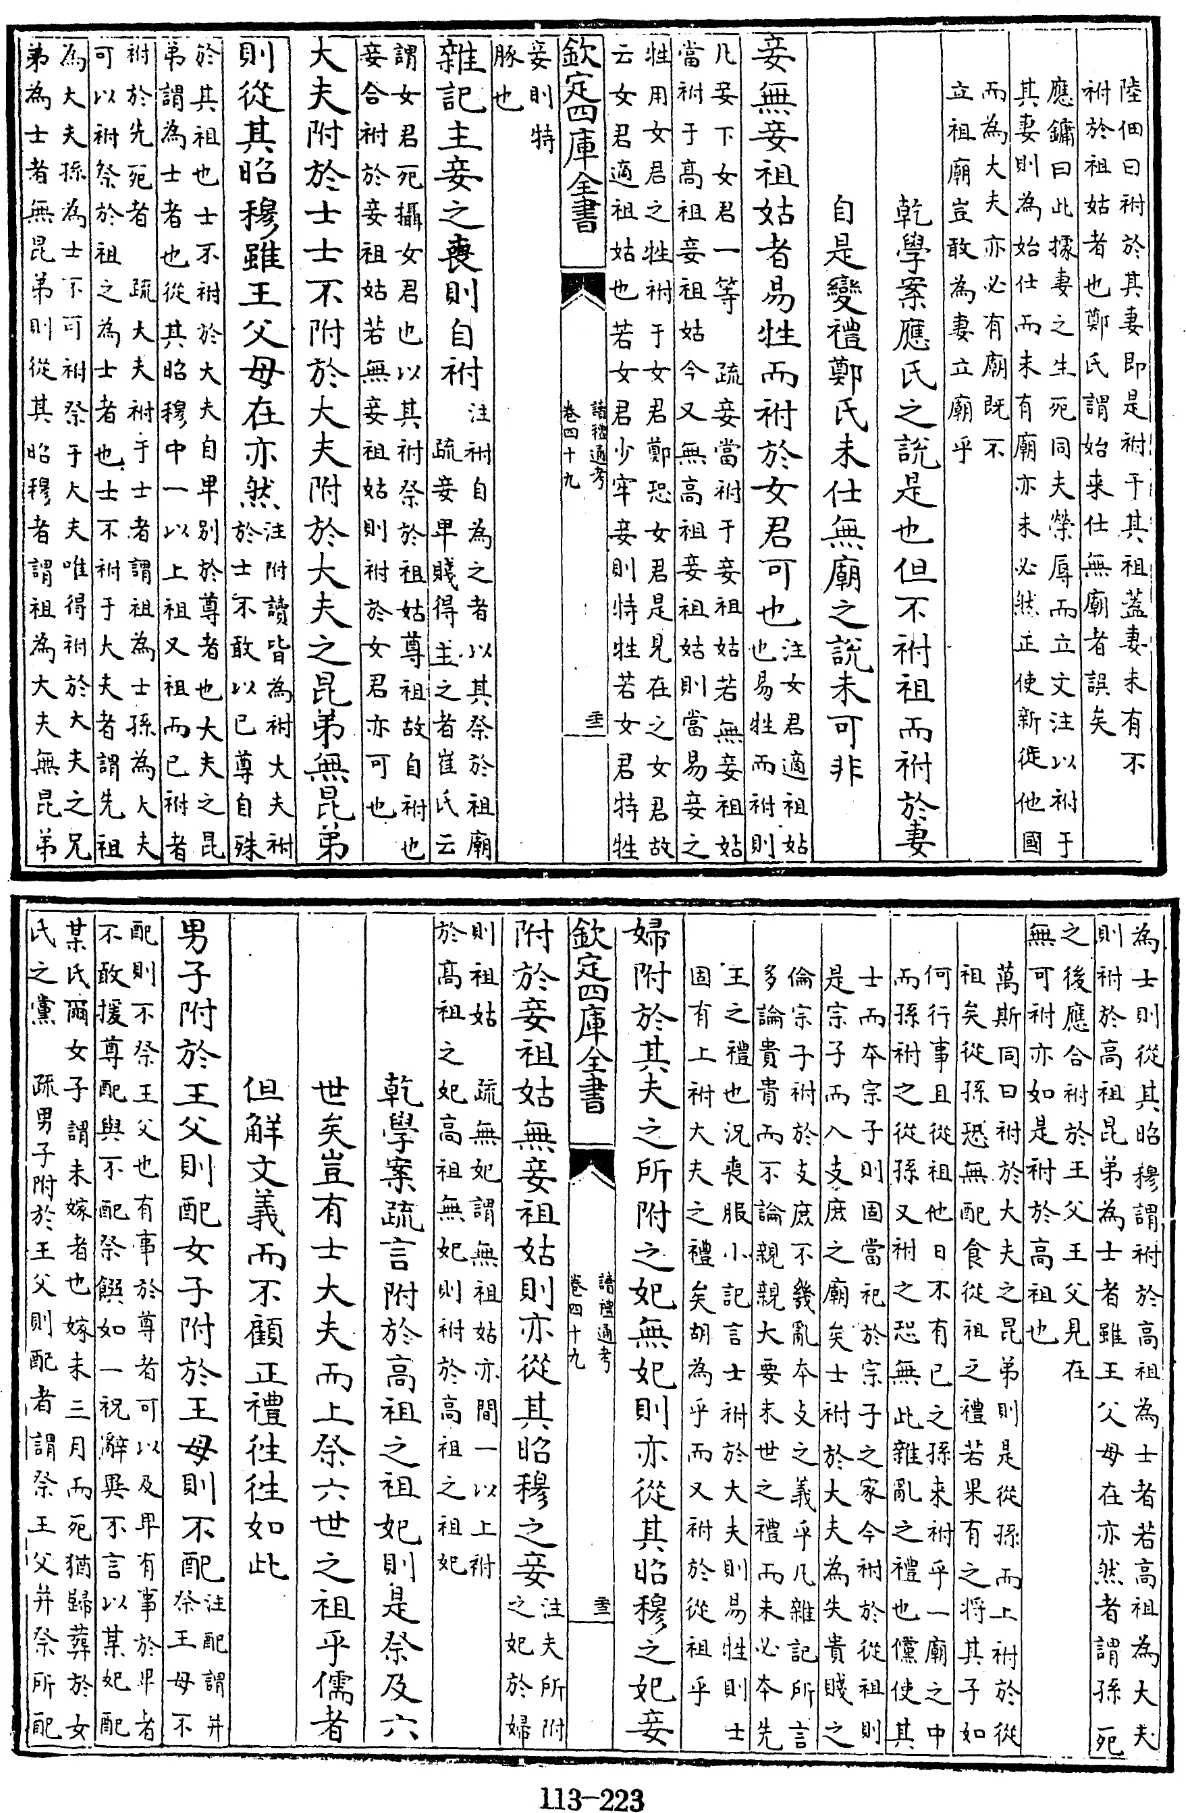 陸佃曰祔於其妻即是祔于其祖蓋妻未有不
祔於祖姑者也鄭氏謂始來仕無廟者誤矣
應鏞曰此據妻之生死同夫榮辱而立文注以祔于
其妻則為始仕而未有廟亦未必然正使新徙他國
而為大夫亦必有廟既不
立祖廟豈敢為妻立廟乎
乾學案應氏之說是也但不祔祖而祔於妻
自是變禮鄭氏未仕無廟之說未可非
妾無妾祖姑者易牲而祔於女君可也
注女君適祖姑
也易牲而祔則
凡妾下女君一等 疏妾當祔于妾祖姑若無妾祖姑
當祔于高祖妾祖姑今又無高祖妾祖姑則當易妾之
牲用女君之牲祔于女君鄭恐女君是見在之女君故
云女君適祖姑也若女君少牢妾則特牲若女君特牲
欽定四庫全書
讀禮通考
卷四十九
妾則特
豚也
雜記主妾之喪則自祔
注祔自為之者以其祭於祖廟
疏妾卑賤得主之者崔氏云
謂女君死攝女君也以其祔祭於祖姑尊祖故自祔也
妾合祔於妾祖姑若無妾祖姑則祔於女君亦可也
大夫附於士士不附於大夫附於大夫之昆弟無昆弟
則從其昭穆雖王父母在亦然
注附讀皆為祔大夫祔
於士不敢以己尊自殊
於其祖也士不祔於大夫自卑別於尊者也大夫之昆
弟謂為士者也從其昭穆中一以上祖又祖而已祔者
祔於先死者 疏大夫祔于士者謂祖為士孫為大夫
可以祔祭於祖之為士者也士不祔于大夫者謂先祖
為大夫孫為士不可祔祭于大夫唯得祔於大夫之兄
弟為士者無昆弟則從其昭穆者謂祖為大夫無昆弟
為士則從其昭穆謂祔於高祖為士者若高祖為大夫
則祔於高祖昆弟為士者雖王父母在亦然者謂孫死
之後應合祔於王父王父見在
無可祔亦如是祔於高祖也
萬斯同曰祔於大夫之昆弟則是從孫而上祔於從
祖矣從孫恐無配食從祖之禮若果有之將其子如
何行事且從祖他日不有已之孫来祔乎一廟之中
而孫祔之從孫又祔之恐無此雜亂之禮也儻使其
士而本宗子則固當祀於宗子之家今祔於從祖則
是宗子而入支庶之廟矣士祔於大夫為失貴賤之
倫宗子祔於支庶不幾亂本支之義乎凡雜記所言
多論貴貴而不論親親大要末世之禮而未必本先
王之禮也況喪服小記言士祔於大夫則易牲則士
固有上祔大夫之禮矣胡為乎而又祔於從祖乎
婦附於其夫之所附之妃無妃則亦從其昭穆之妃妾
欽定四庫全書
讀禮通考
卷四十九
附於妾祖姑無妾祖姑則亦從其昭穆之妾
注夫所附
之妃於婦
則祖姑 疏無妃謂無祖姑亦間一以上祔
於高祖之妃高祖無妃則祔於高祖之祖妃
乾學案疏言附於高祖之祖妃則是祭及六
世矣豈有士大夫而上祭六世之祖乎儒者
但解文義而不顧正禮往往如此
男子附於王父則配女子附於王母則不配
注配謂并
祭王母不
配則不祭王父也有事於尊者可以及卑有事於卑者
不敢援尊配與不配祭饌如一祝辭異不言以某妃配
某氏爾女子謂未嫁者也嫁未三月而死猶歸葬於女
氏之黨 疏男子附於王父則配者謂祭王父并祭所配
113-223